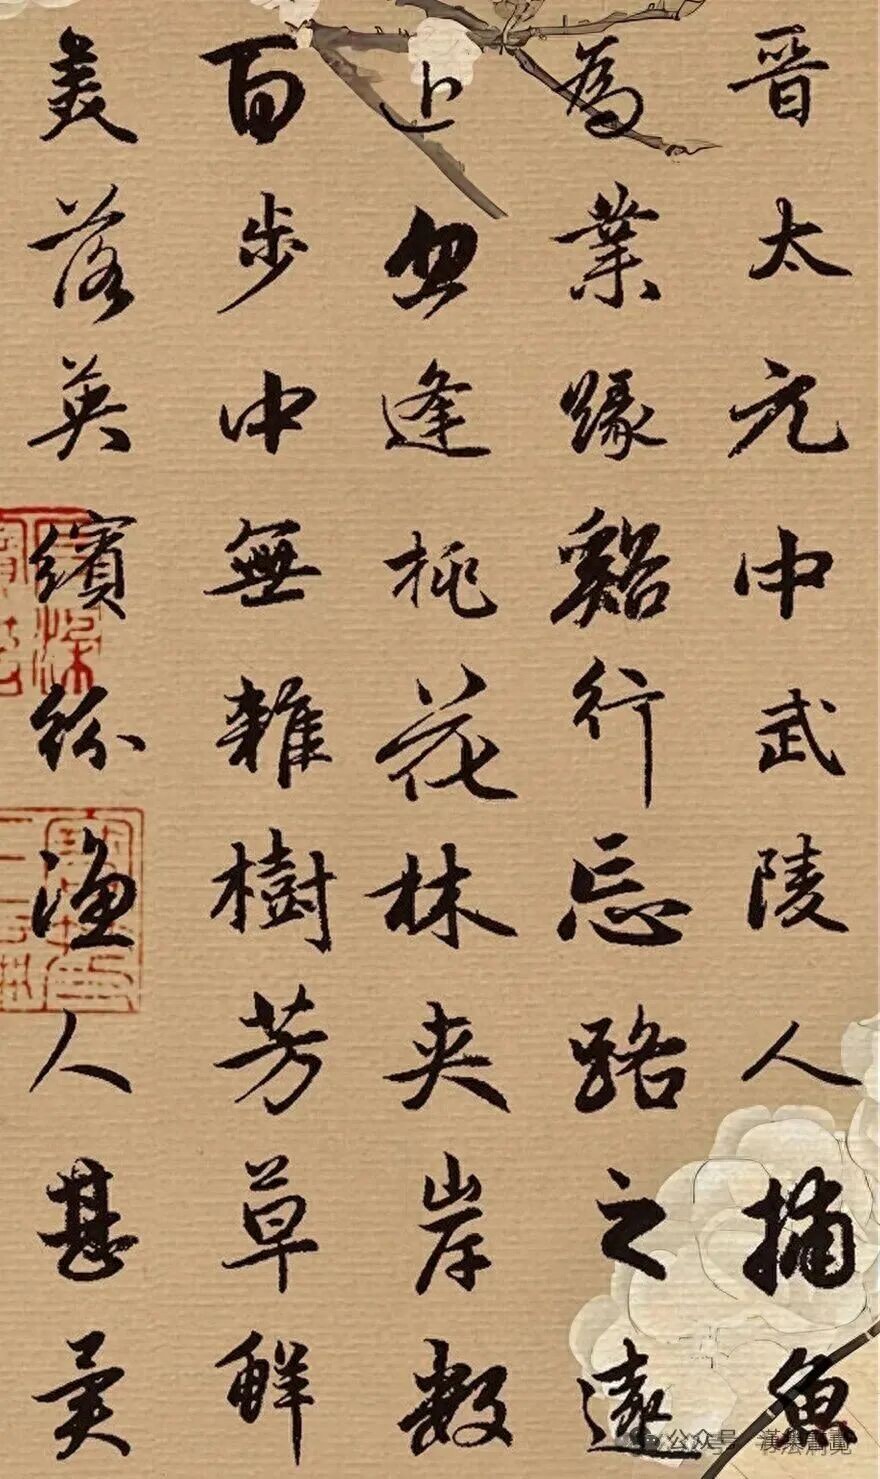 晋太元中武陵人捕魚
為業緣谿行忘路之遠
近忽逢桃花林夾岸數
百步中無雜樹芳草鮮
美落英繽紛漁人甚異
公众号